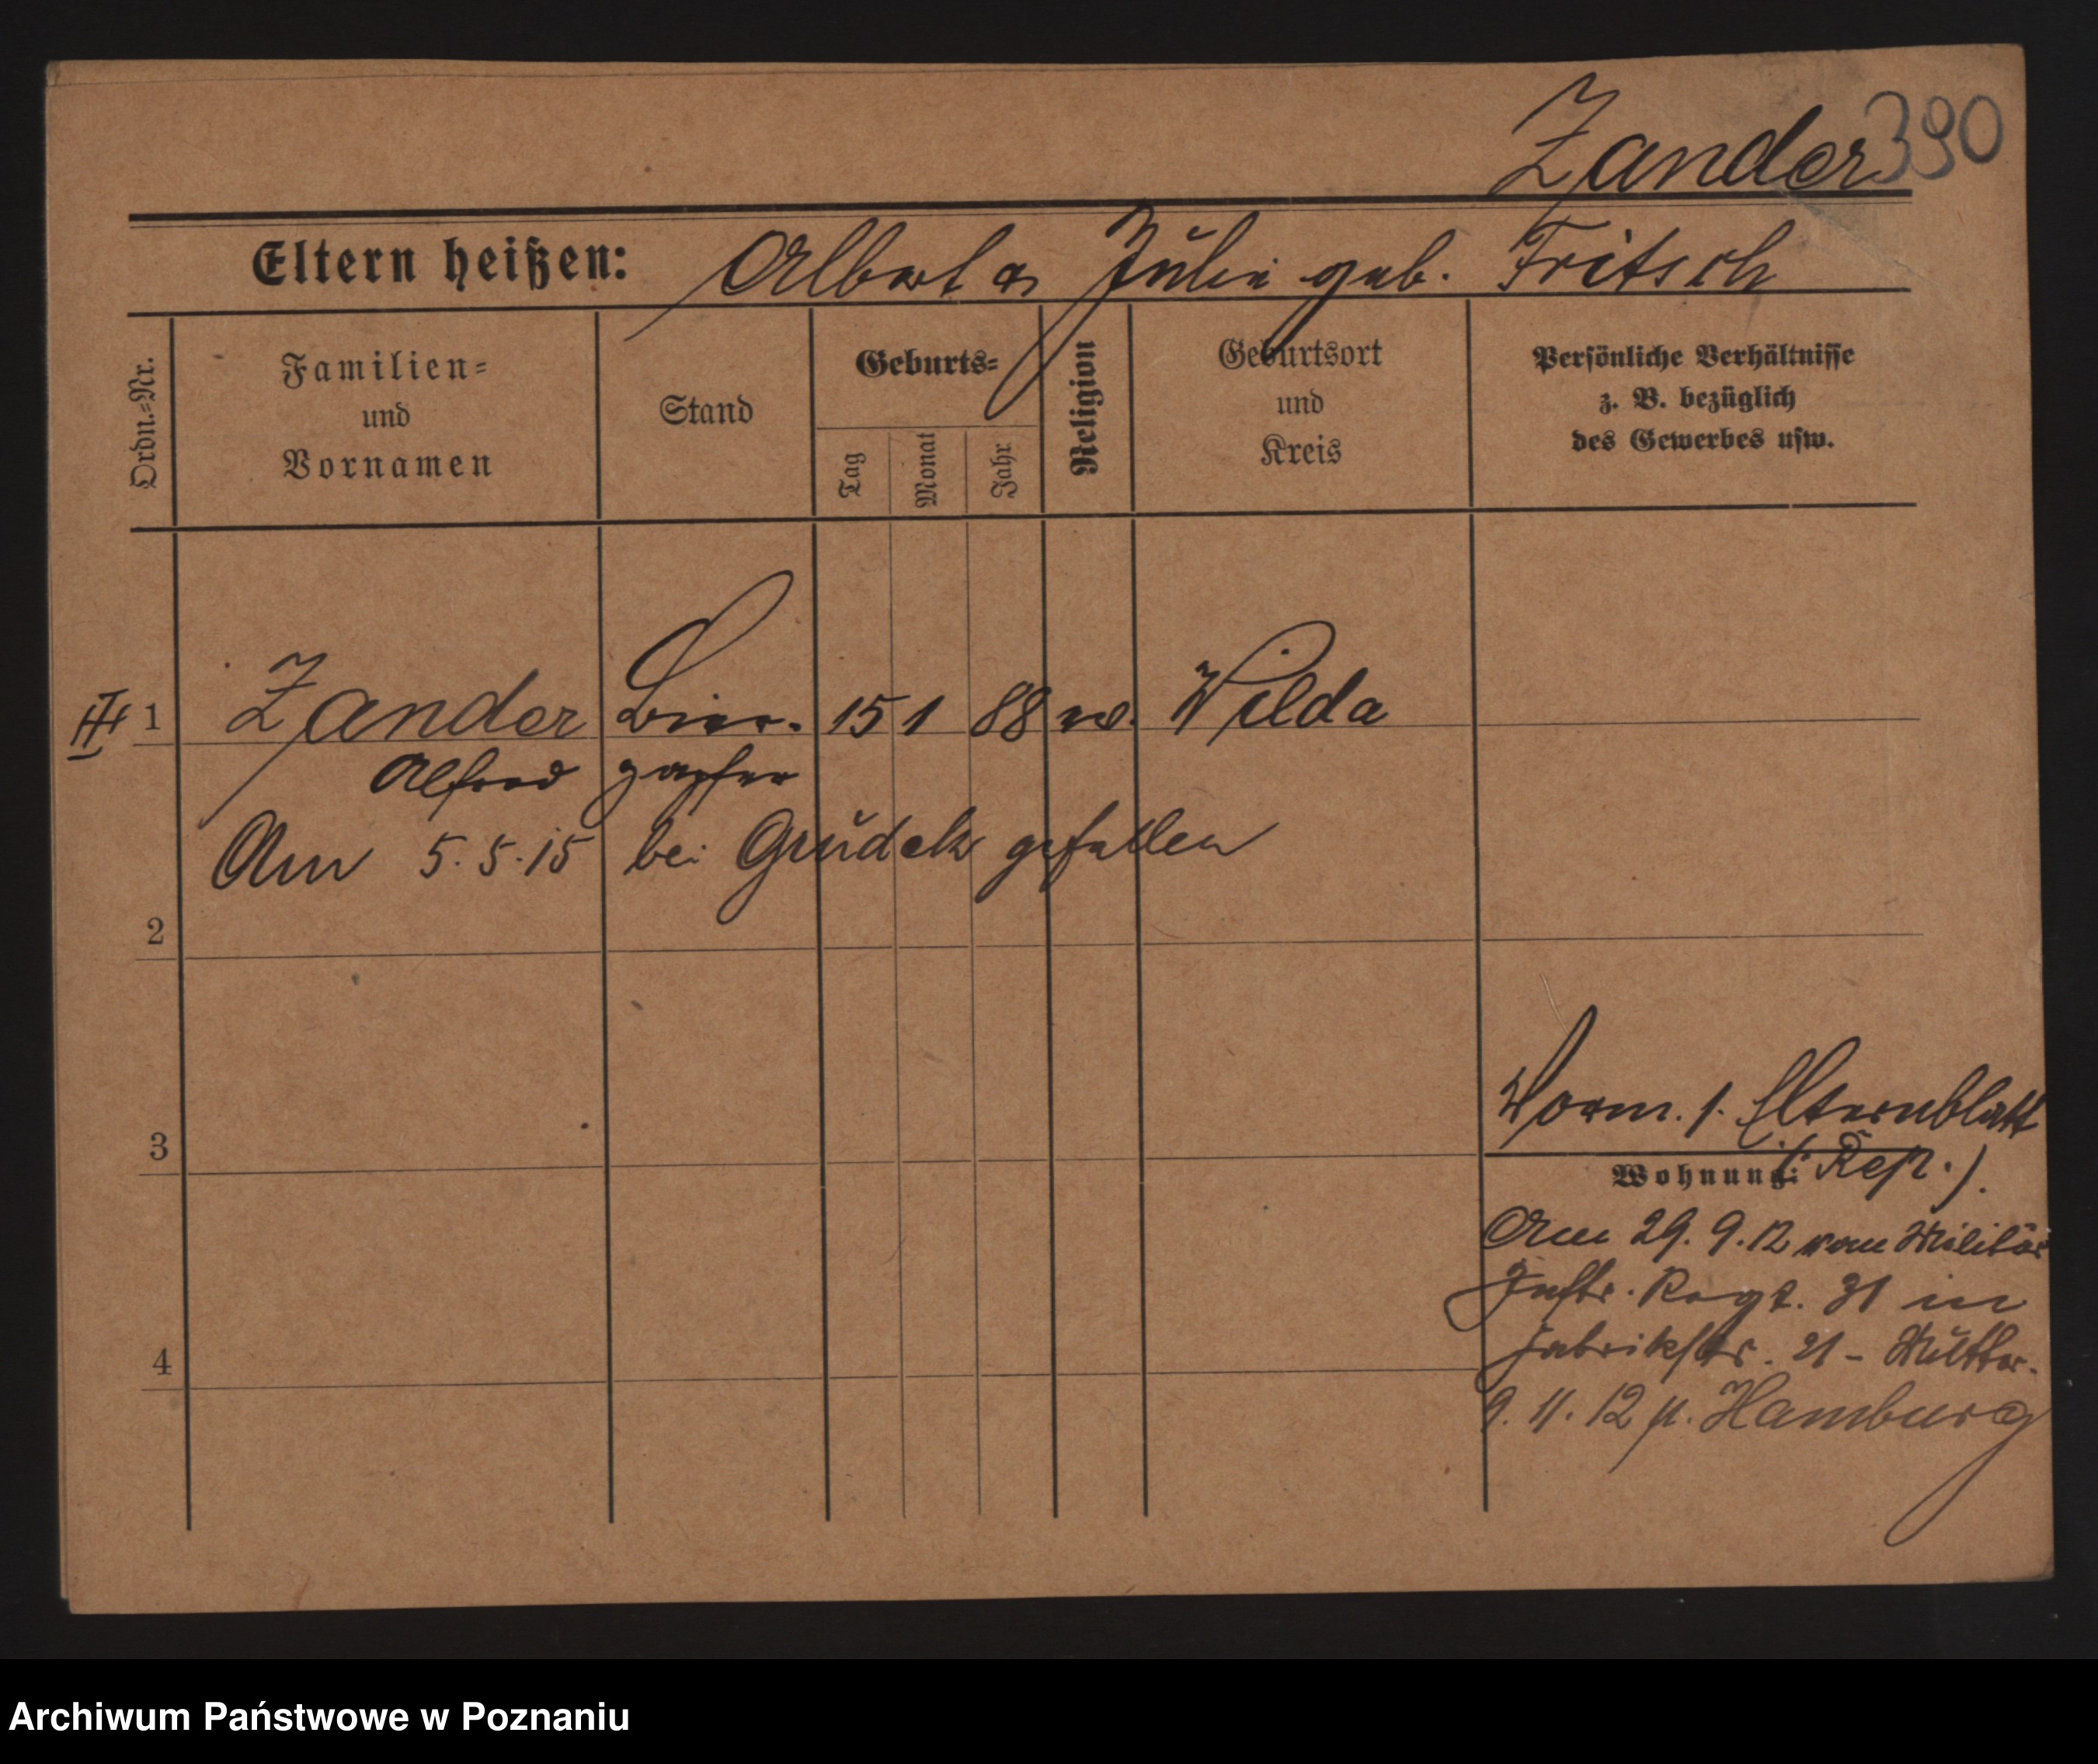 Zander 390
Eltern heißen: Albert u. Julie geb. Fritsch
Ordn.-Nr.
Familien-
und
Vornamen
Stand
Geburts-
Tag
Monat
Jahr
Religion
Geburtsort
und
Kreis
Persönliche Verhältnisse
z. B. bezüglich
des Gewerbes usw.
1 Zander Bier- 15 1 88 ev. Wilda
Alfred zapfer
Am 5.5.15 bei Grudek gefallen
2
3
4
Vorm. s. Elternblatt
(Rep.)
Wohnung:
Am 29.9.12 vom Militär
Inftr. Regt. 31 in
Fabrikstr. 21 - Mutter.
9.11.12 n. Hamburg
Archiwum Państwowe w Poznaniu